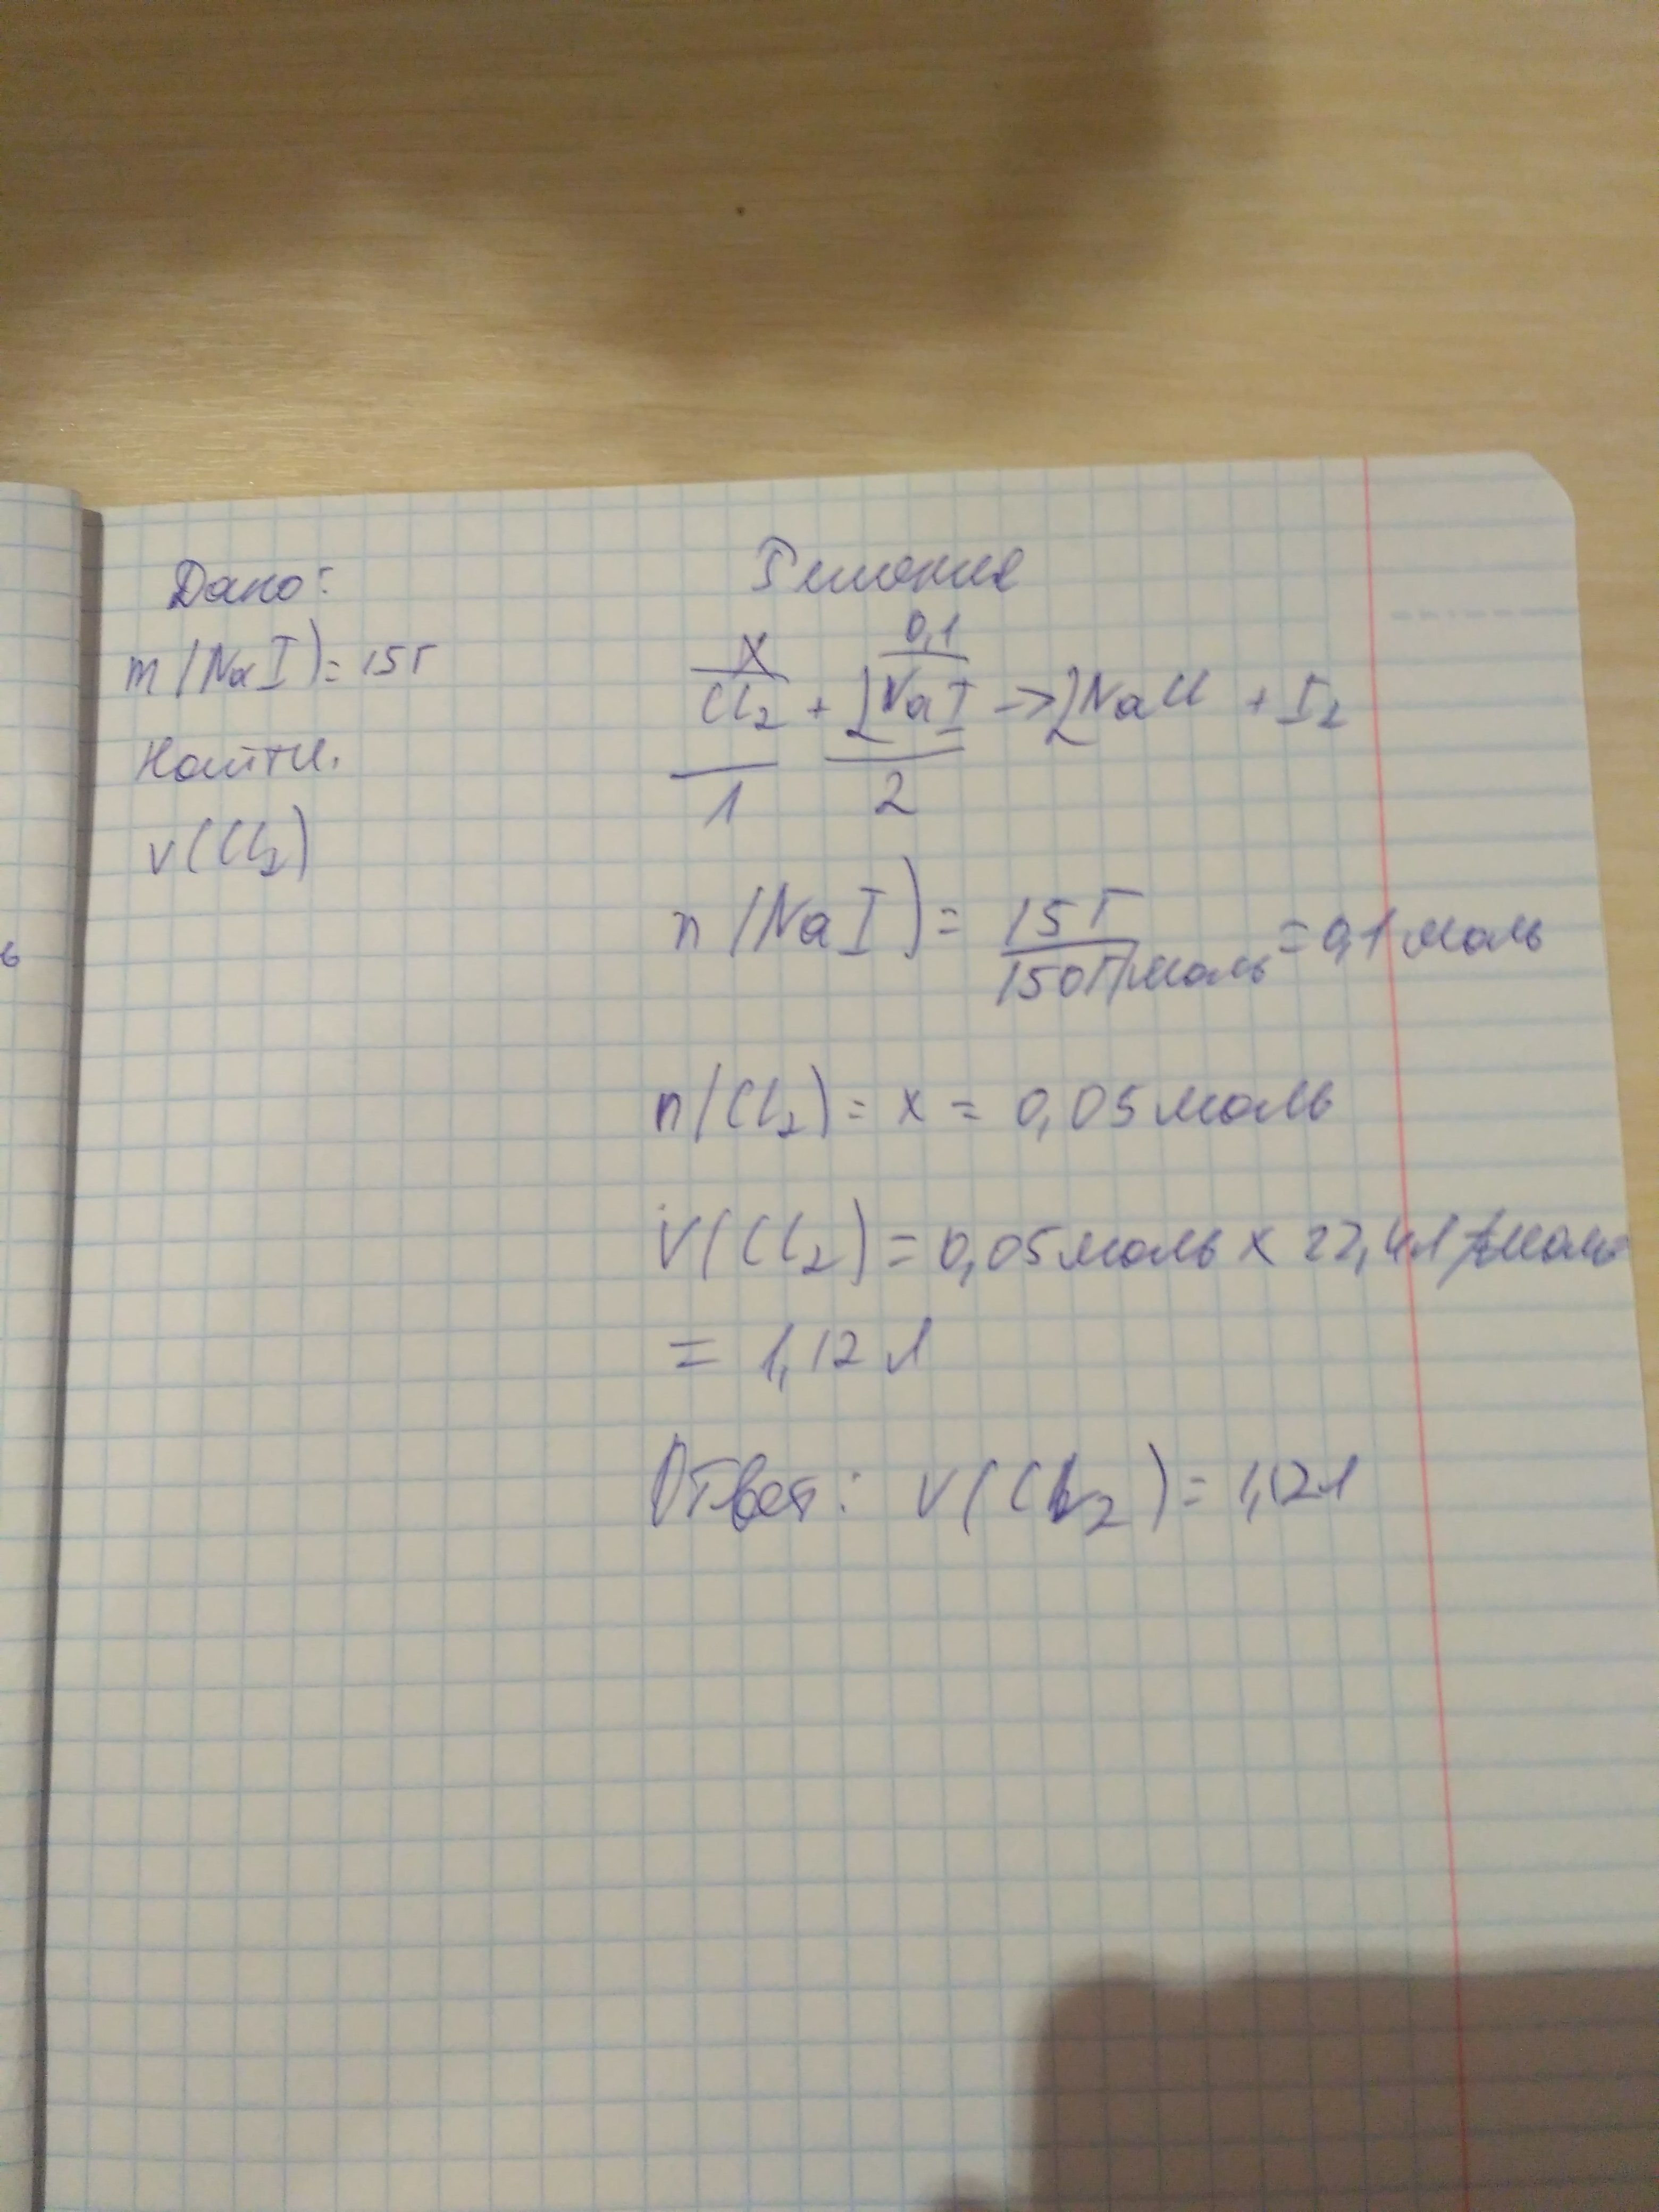 Дано:
m(NaI)=15г
Найти.
V(Cl₂)
Решение
x 0,1
Cl₂ + 2NaI → 2NaCl + I₂
1 2
n(NaI) = 15г / 150г/моль = 0,1 моль
n(Cl₂) = x = 0,05 моль
V(Cl₂) = 0,05 моль x 22,4 л/моль
= 1,12 л
Ответ: V(Cl₂) = 1,12л
ь